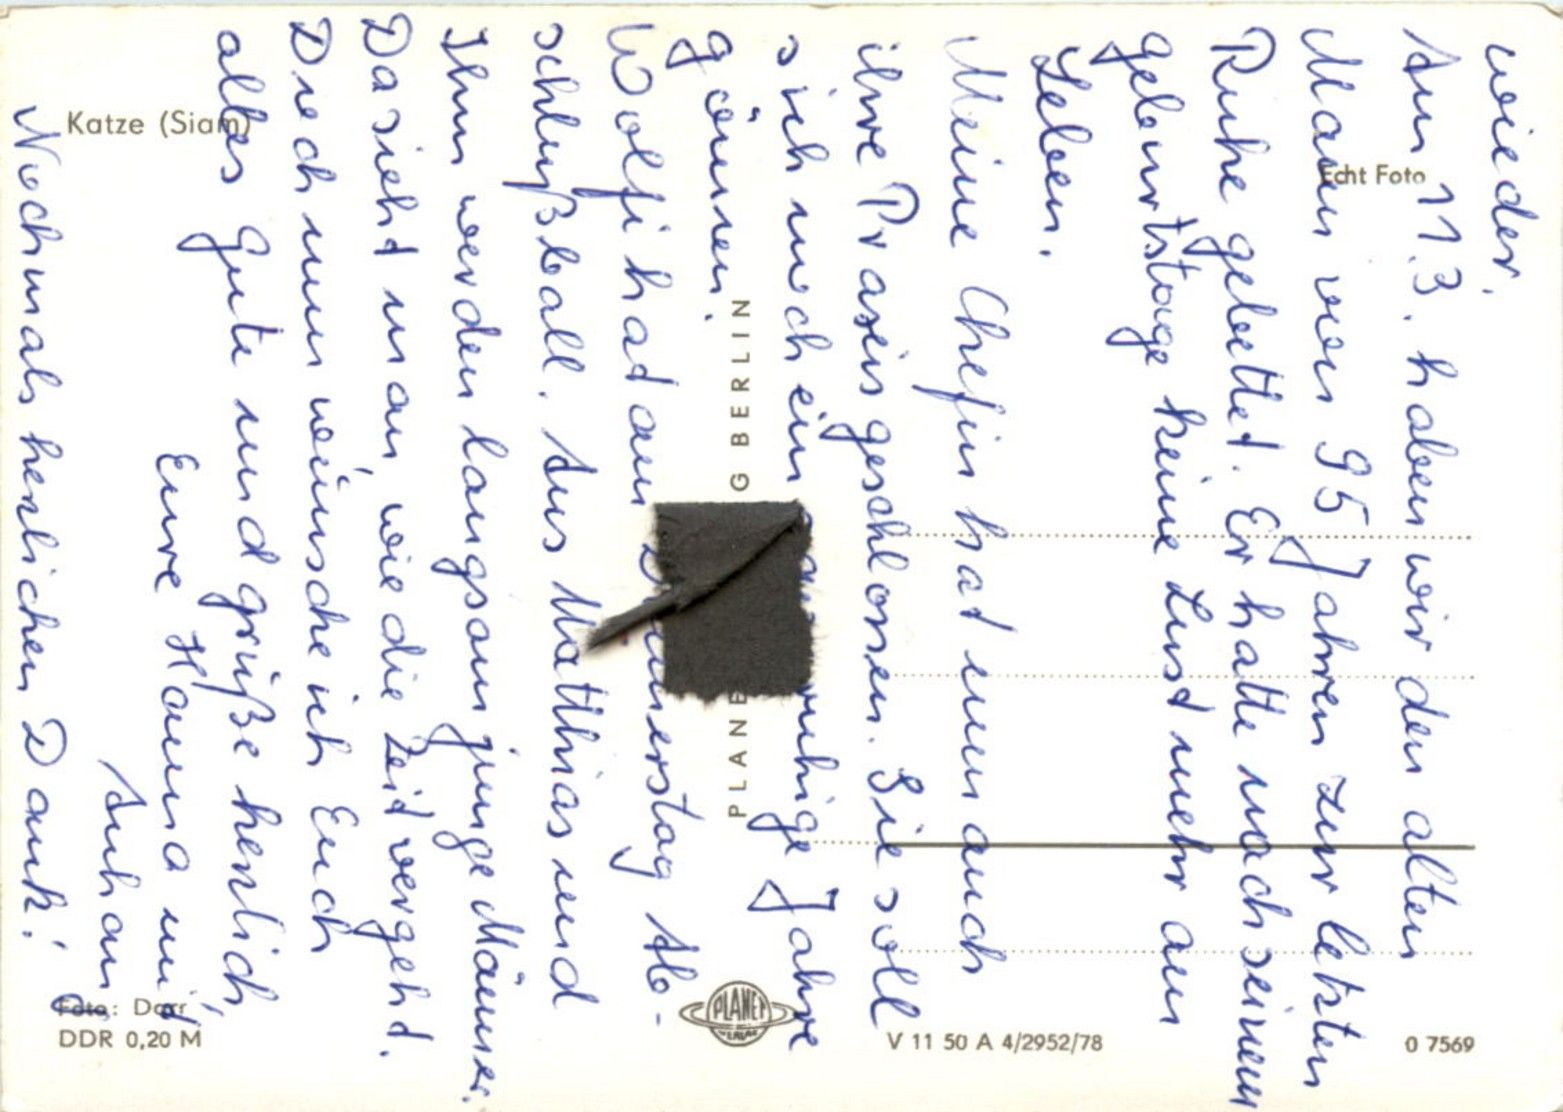 wieder.
Am 11.3. haben wir den alten
Mann von 95 Jahren zur letzten
Ruhe gebettet. Er hatte nach seinem
geburtstage keine Lust mehr am
Leben.
Meine Chefin hat nun auch
ihre Praxis geschlossen. Sie soll
sich noch ein ruhige Jahre
gönnen.
Wolfi hat am Ab-
schlußball. Aus Matthias und
Ihm werden langsam junge Männer.
Da sieht man, wie die Zeit vergeht.
Drech nun wünsche ich Euch
alles Gute und grüße herzlich
Eure Hanna mit
Anhang
Nochmals herzlichen Dank!
Katze (Siam)
Echt Foto
PLANE G BERLIN
PLANET
VERLAG
Foto: Dorr
DDR 0,20 M
V 11 50 A 4/2952/78
0 7569